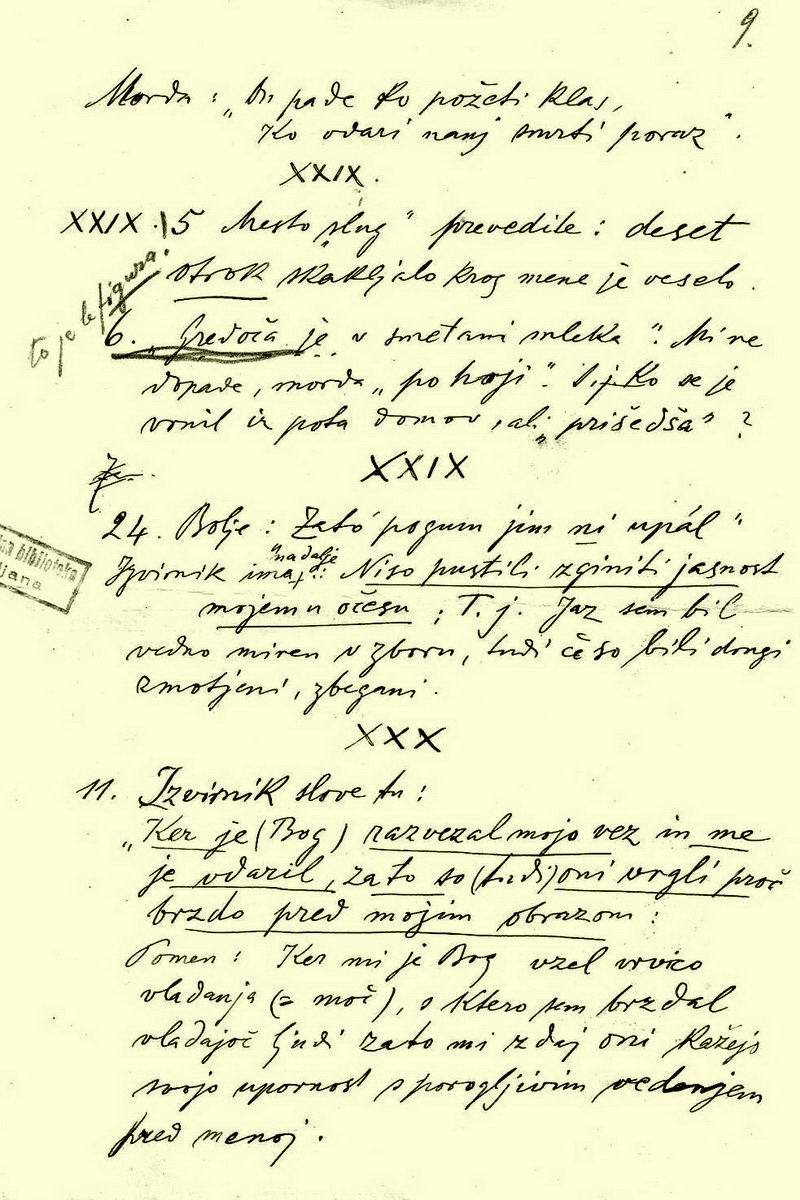 9.
Morda: „In pade ko požeti klas,
Ko udari nanj smrti poraz".
XXIX.
XXIX. 5 Mesto „slug" prevedite: deset
otrok skakljalo krog mene je veselo.
to je le figura!
6. „Gredoča je v smetani mleka". Mi ne
dopade, morda „po hoji". Ko se je
vrnil iz pota domov, ali „prišedša"?
XXIX
24. Bolje: Zató pogum jim ni upál"
Izvirnik ima "nadalje": Niso pustili zginiti jasnost
mojemu očesu; T. j. Jaz sem bil
vedno miren v zboru, tudi če so bili drugi
zmotjeni, zbegani.
na biblioteka
ljana
XXX
11. Izvirnik slove tu:
„Ker je (Bog) razvezal mojo vez in me
je udaril, zato so (tudi) oni vrgli proč
brzdo pred mojim obrazom:
Pomen: Ker mi je Bog vzel vrvico
vladanja (= moč), s ktero sem brzdal
vladajoč ljudi zato mi zdaj oni kažejo
svojo upornost s porogljivim vedenjem
pred menoj.